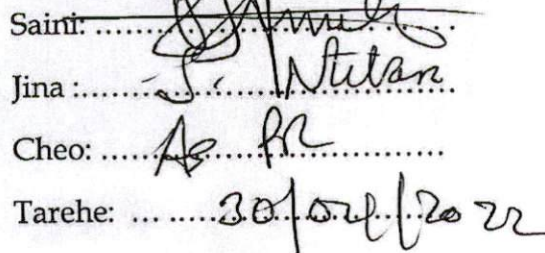 Saini: ..............................
Jina :........J. Ntutan........
Cheo: .....Ag RR..............
Tarehe: ... .....30/04/2022